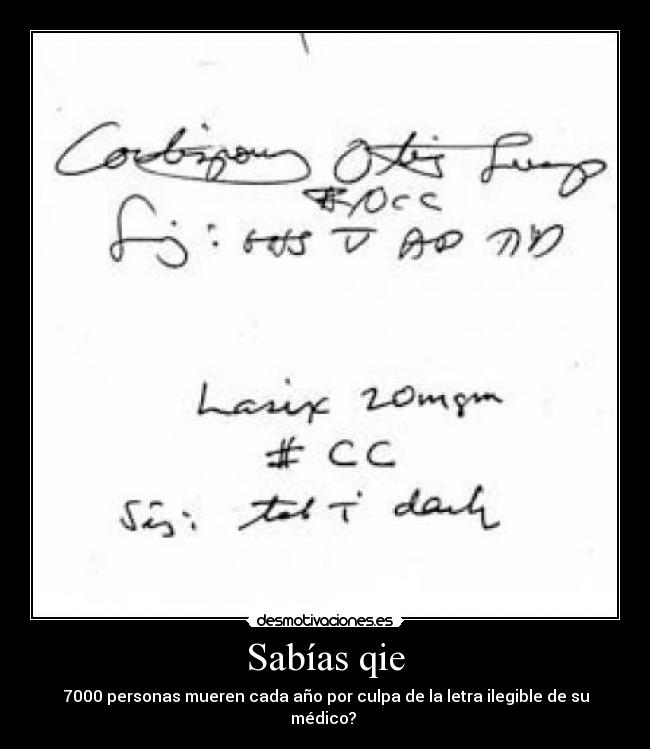 Cortisporin Otic Susp
#/0cc
Sig: gtts V AD TID
Lasix 20mgm
# CC
Sig: tab i daily
desmotivaciones.es
Sabías qie
7000 personas mueren cada año por culpa de la letra ilegible de su
médico?